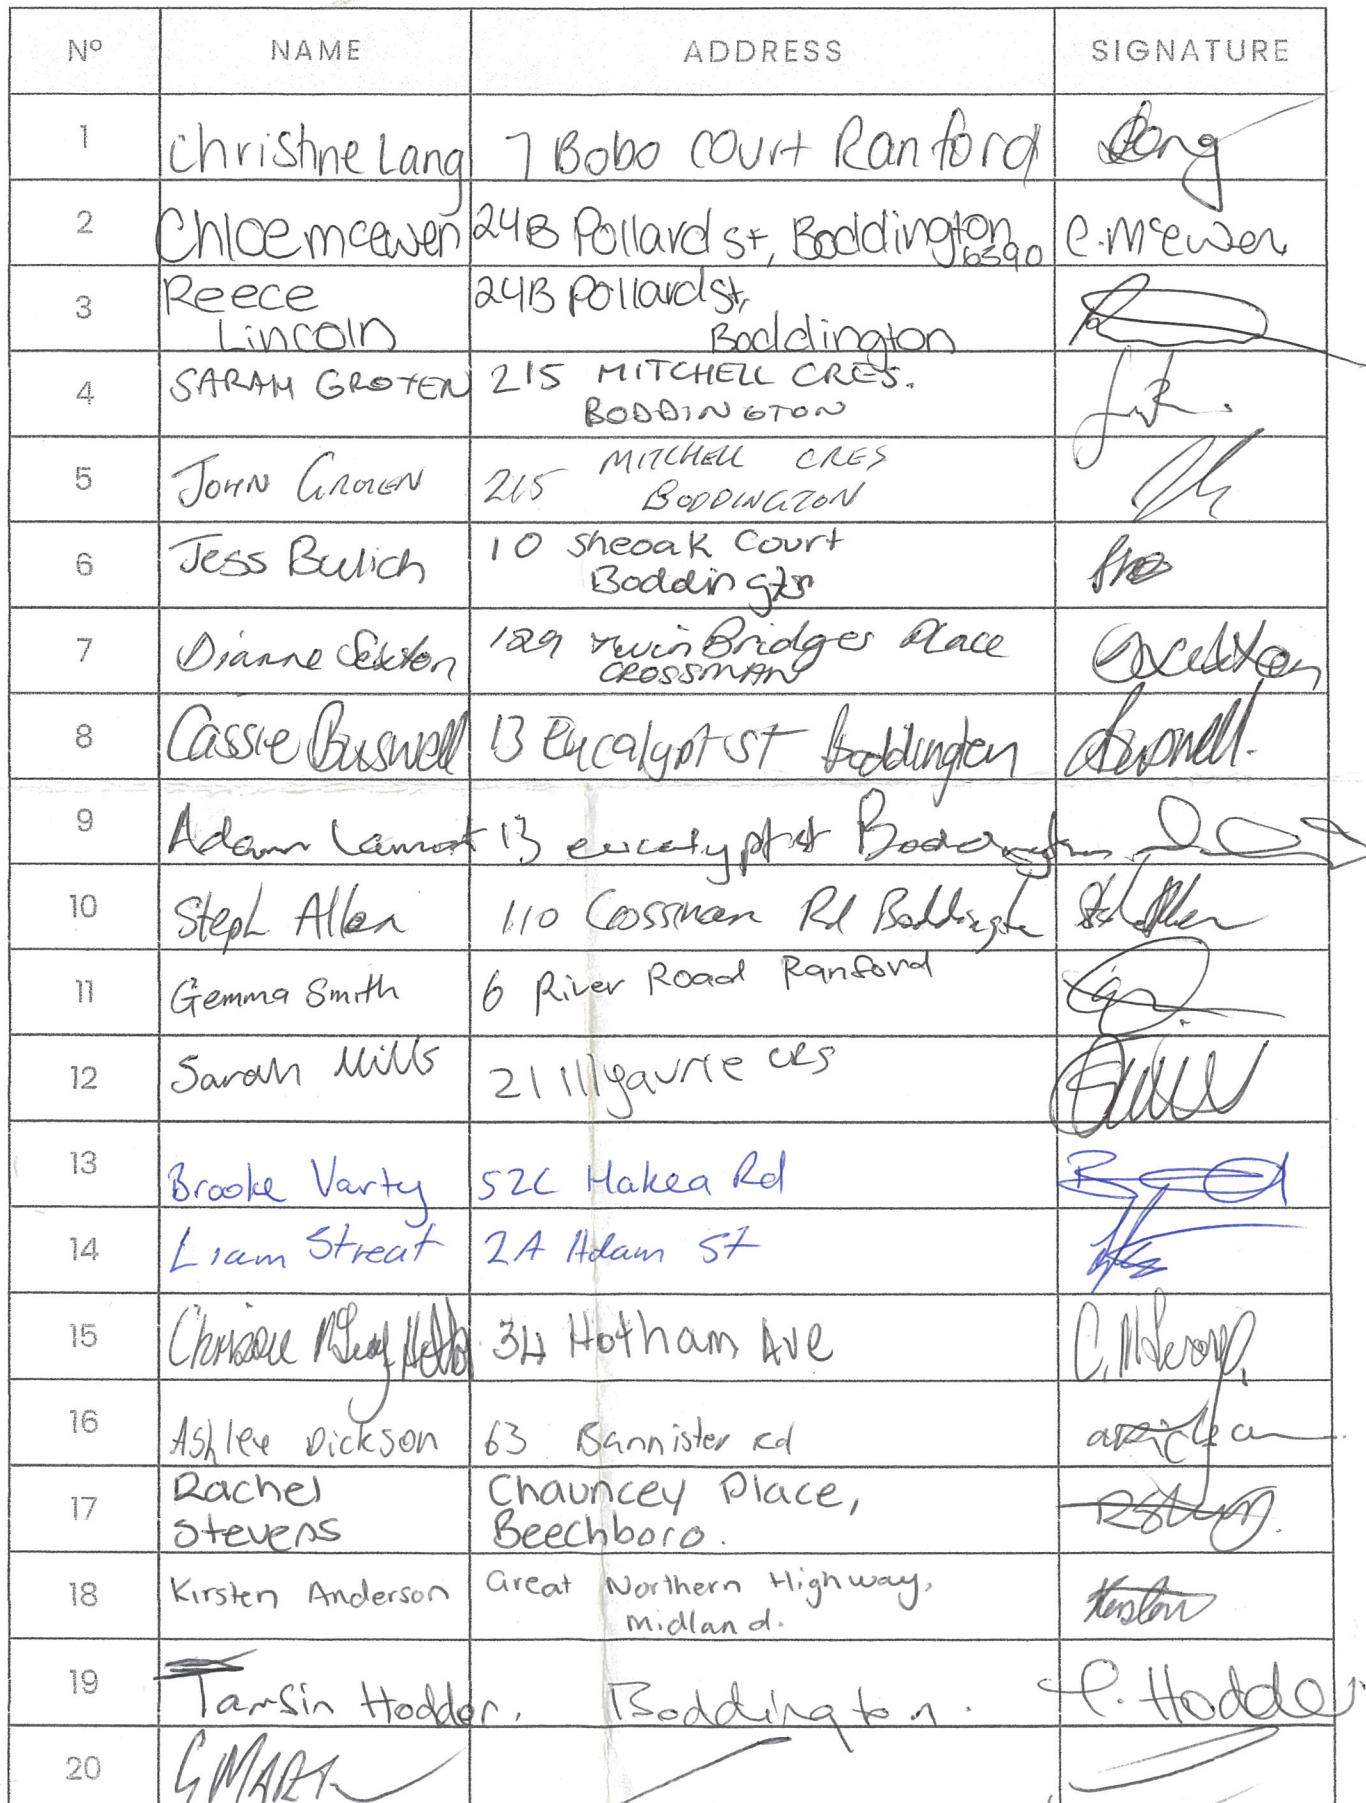 Nº NAME ADDRESS SIGNATURE
1 Christine Lang 7 Bobo Court Ranford Lang
2 Chloe mcewen 24B Pollard st, Boddington 6390 C. McEwen
3 Reece Lincoln 24B Pollard st, Boddington
4 SARAH GROTEN 215 MITCHELL CRES. BODDINGTON
5 JOHN GROTEN 215 MITCHELL CRES BODDINGTON
6 Jess Bulich 10 Sheoak Court Boddington
7 Dianne Sexton 189 Twin Bridges Place CROSSMAN
8 Cassie Buswell 13 Eucalypt st Boddington
9 Adam Lamont 13 eucalypt st Boddington
10 Steph Allen 110 Crossman Rd Boddington
11 Gemma Smith 6 River Road Ranford
12 Sarah Mills 21 Illyaurie CRS
13 Brooke Varty 52C Hakea Rd
14 Liam Streat 2A Adam St
15 34 Hotham Ave
16 Ashlee Dickson 63 Bannister rd
17 Rachel Stevens Chauncey Place, Beechboro.
18 Kirsten Anderson Great Northern Highway, Midland. Kirsten
19 Tamsin Hodder. Boddington. T. Hodder
20